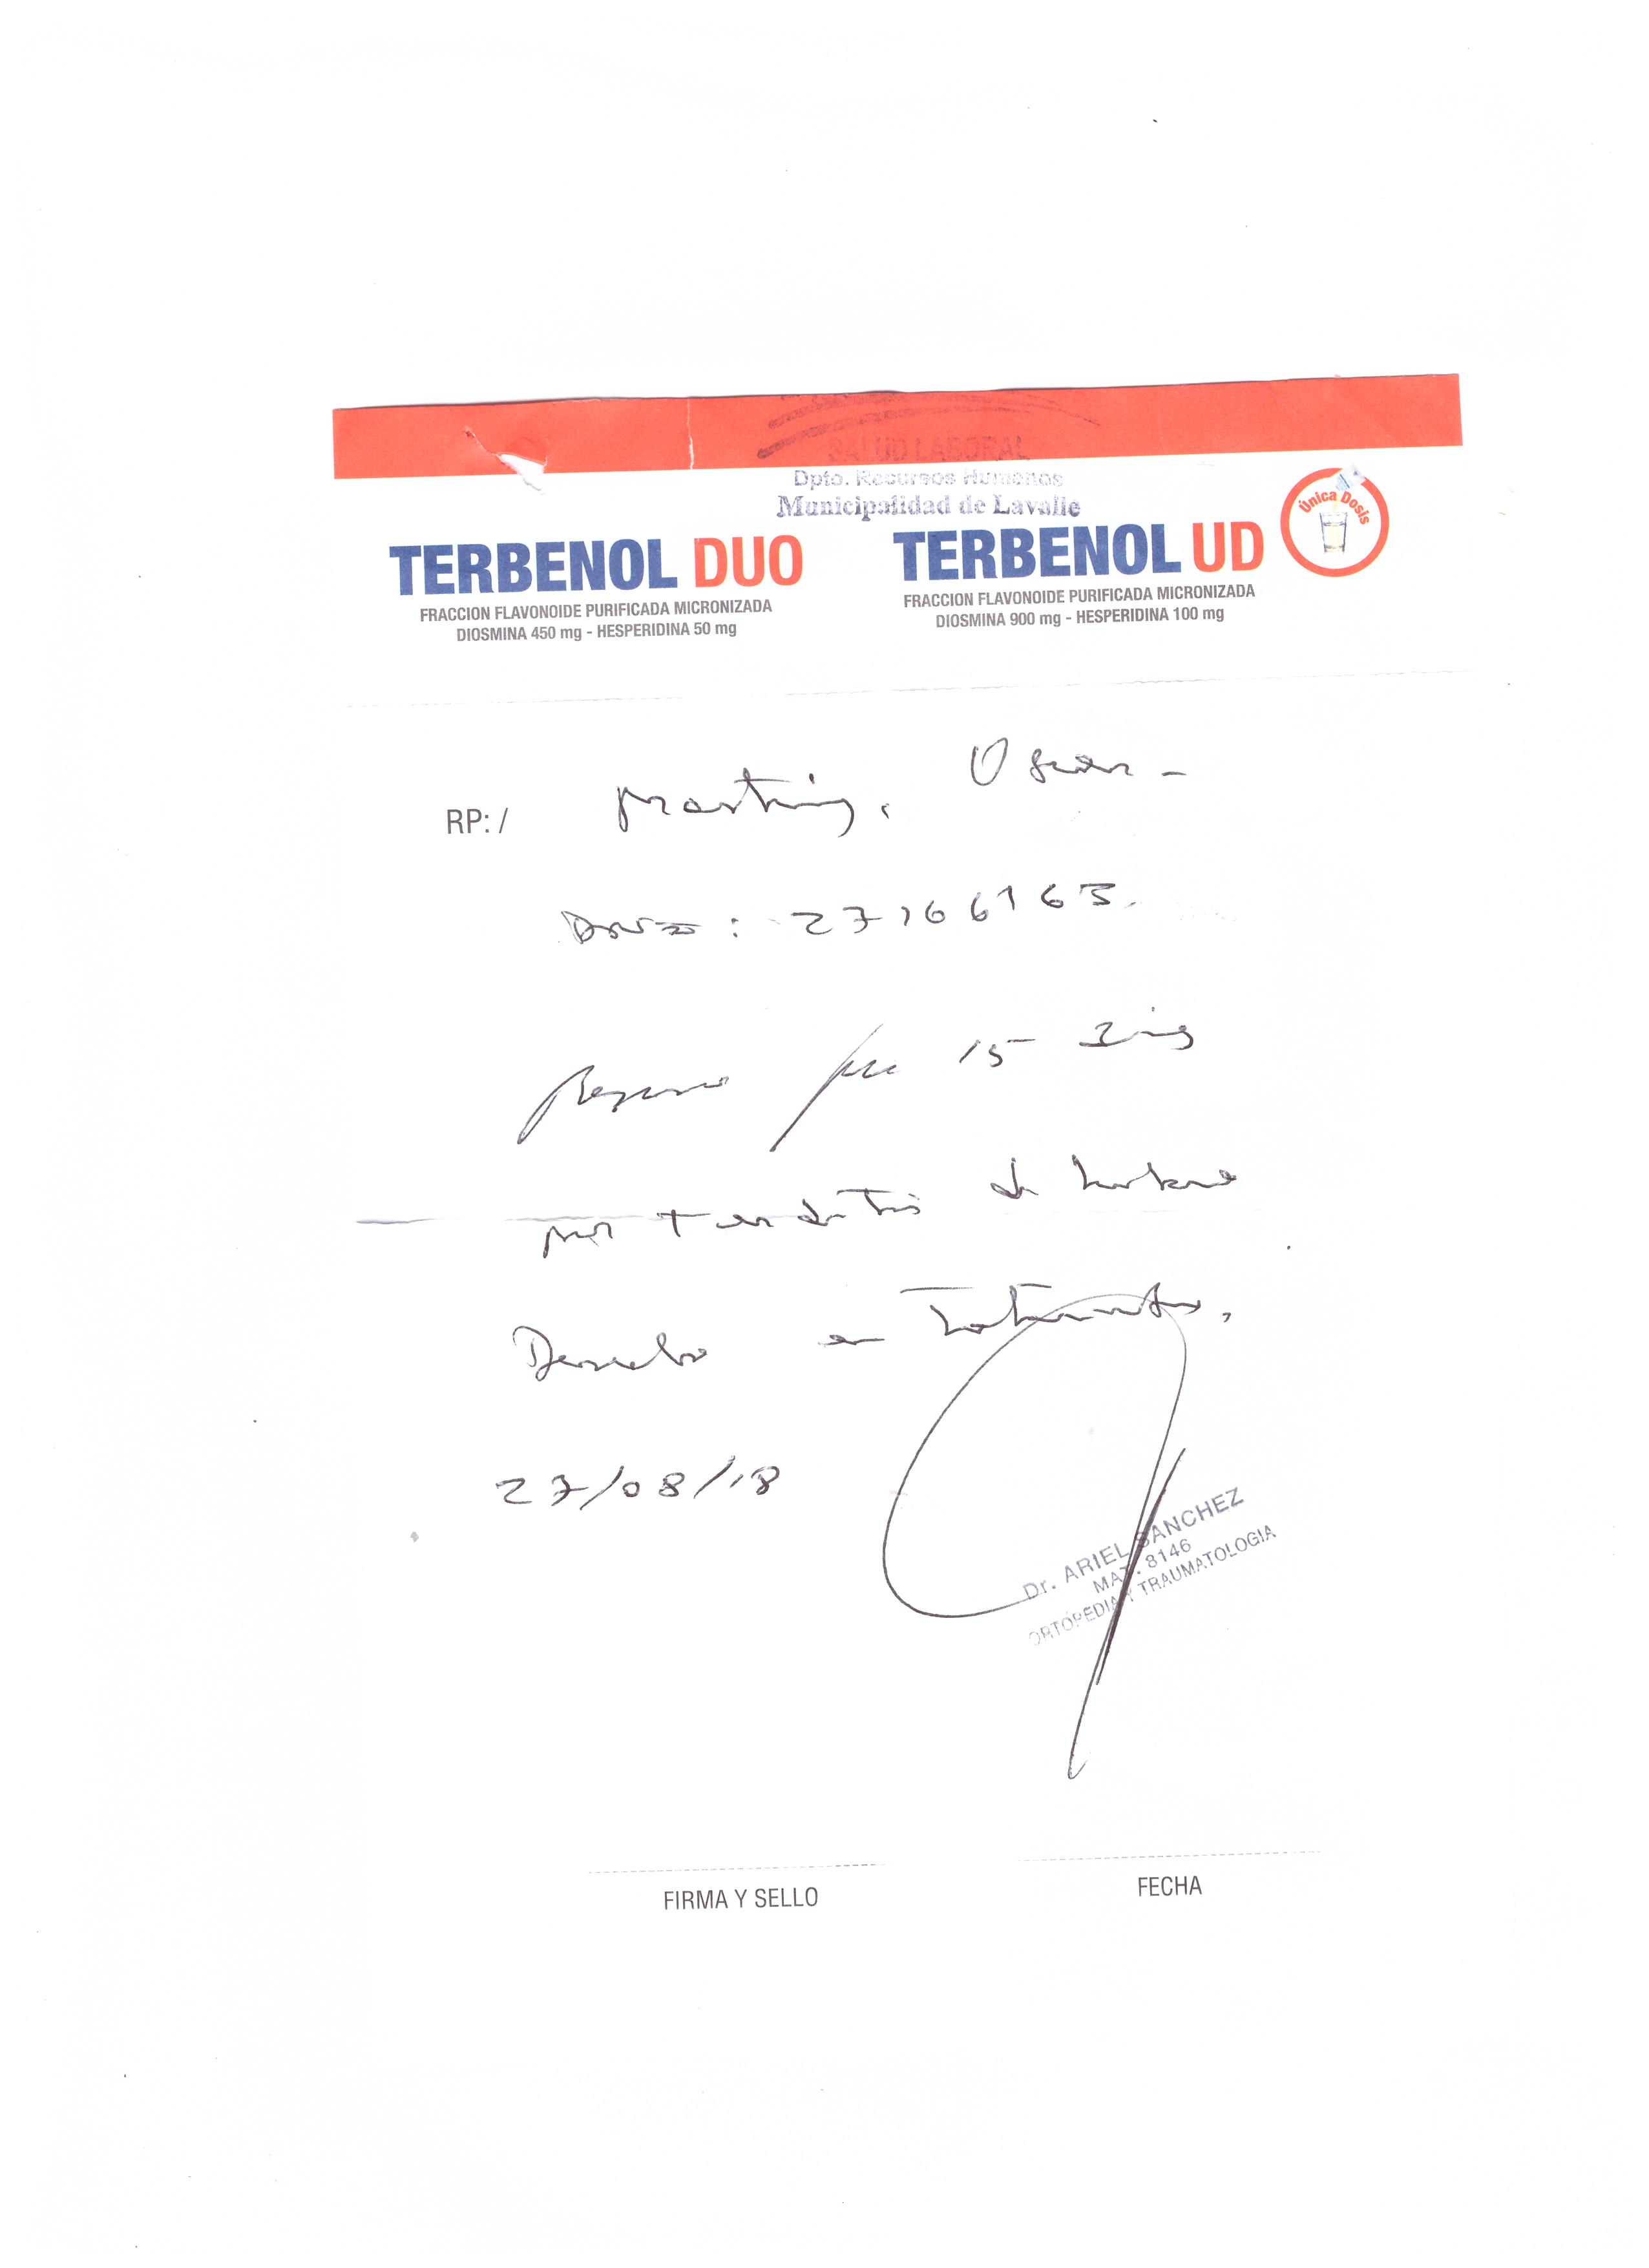 SALUD LABORAL
Dpto. Recursos Humanos
Municipalidad de Lavalle
TERBENOL DUO
FRACCION FLAVONOIDE PURIFICADA MICRONIZADA
DIOSMINA 450 mg - HESPERIDINA 50 mg
TERBENOL UD
FRACCION FLAVONOIDE PURIFICADA MICRONIZADA
DIOSMINA 900 mg - HESPERIDINA 100 mg
Única Dosis
RP: /
Oscar -
DNI : 27166163.
Reposo por 15 días
por tendinitis de hombro
Derecho en tratamiento.
27/08/18
Dr. ARIEL SANCHEZ
MAT. 8146
ORTOPEDIA Y TRAUMATOLOGIA
FIRMA Y SELLO
FECHA